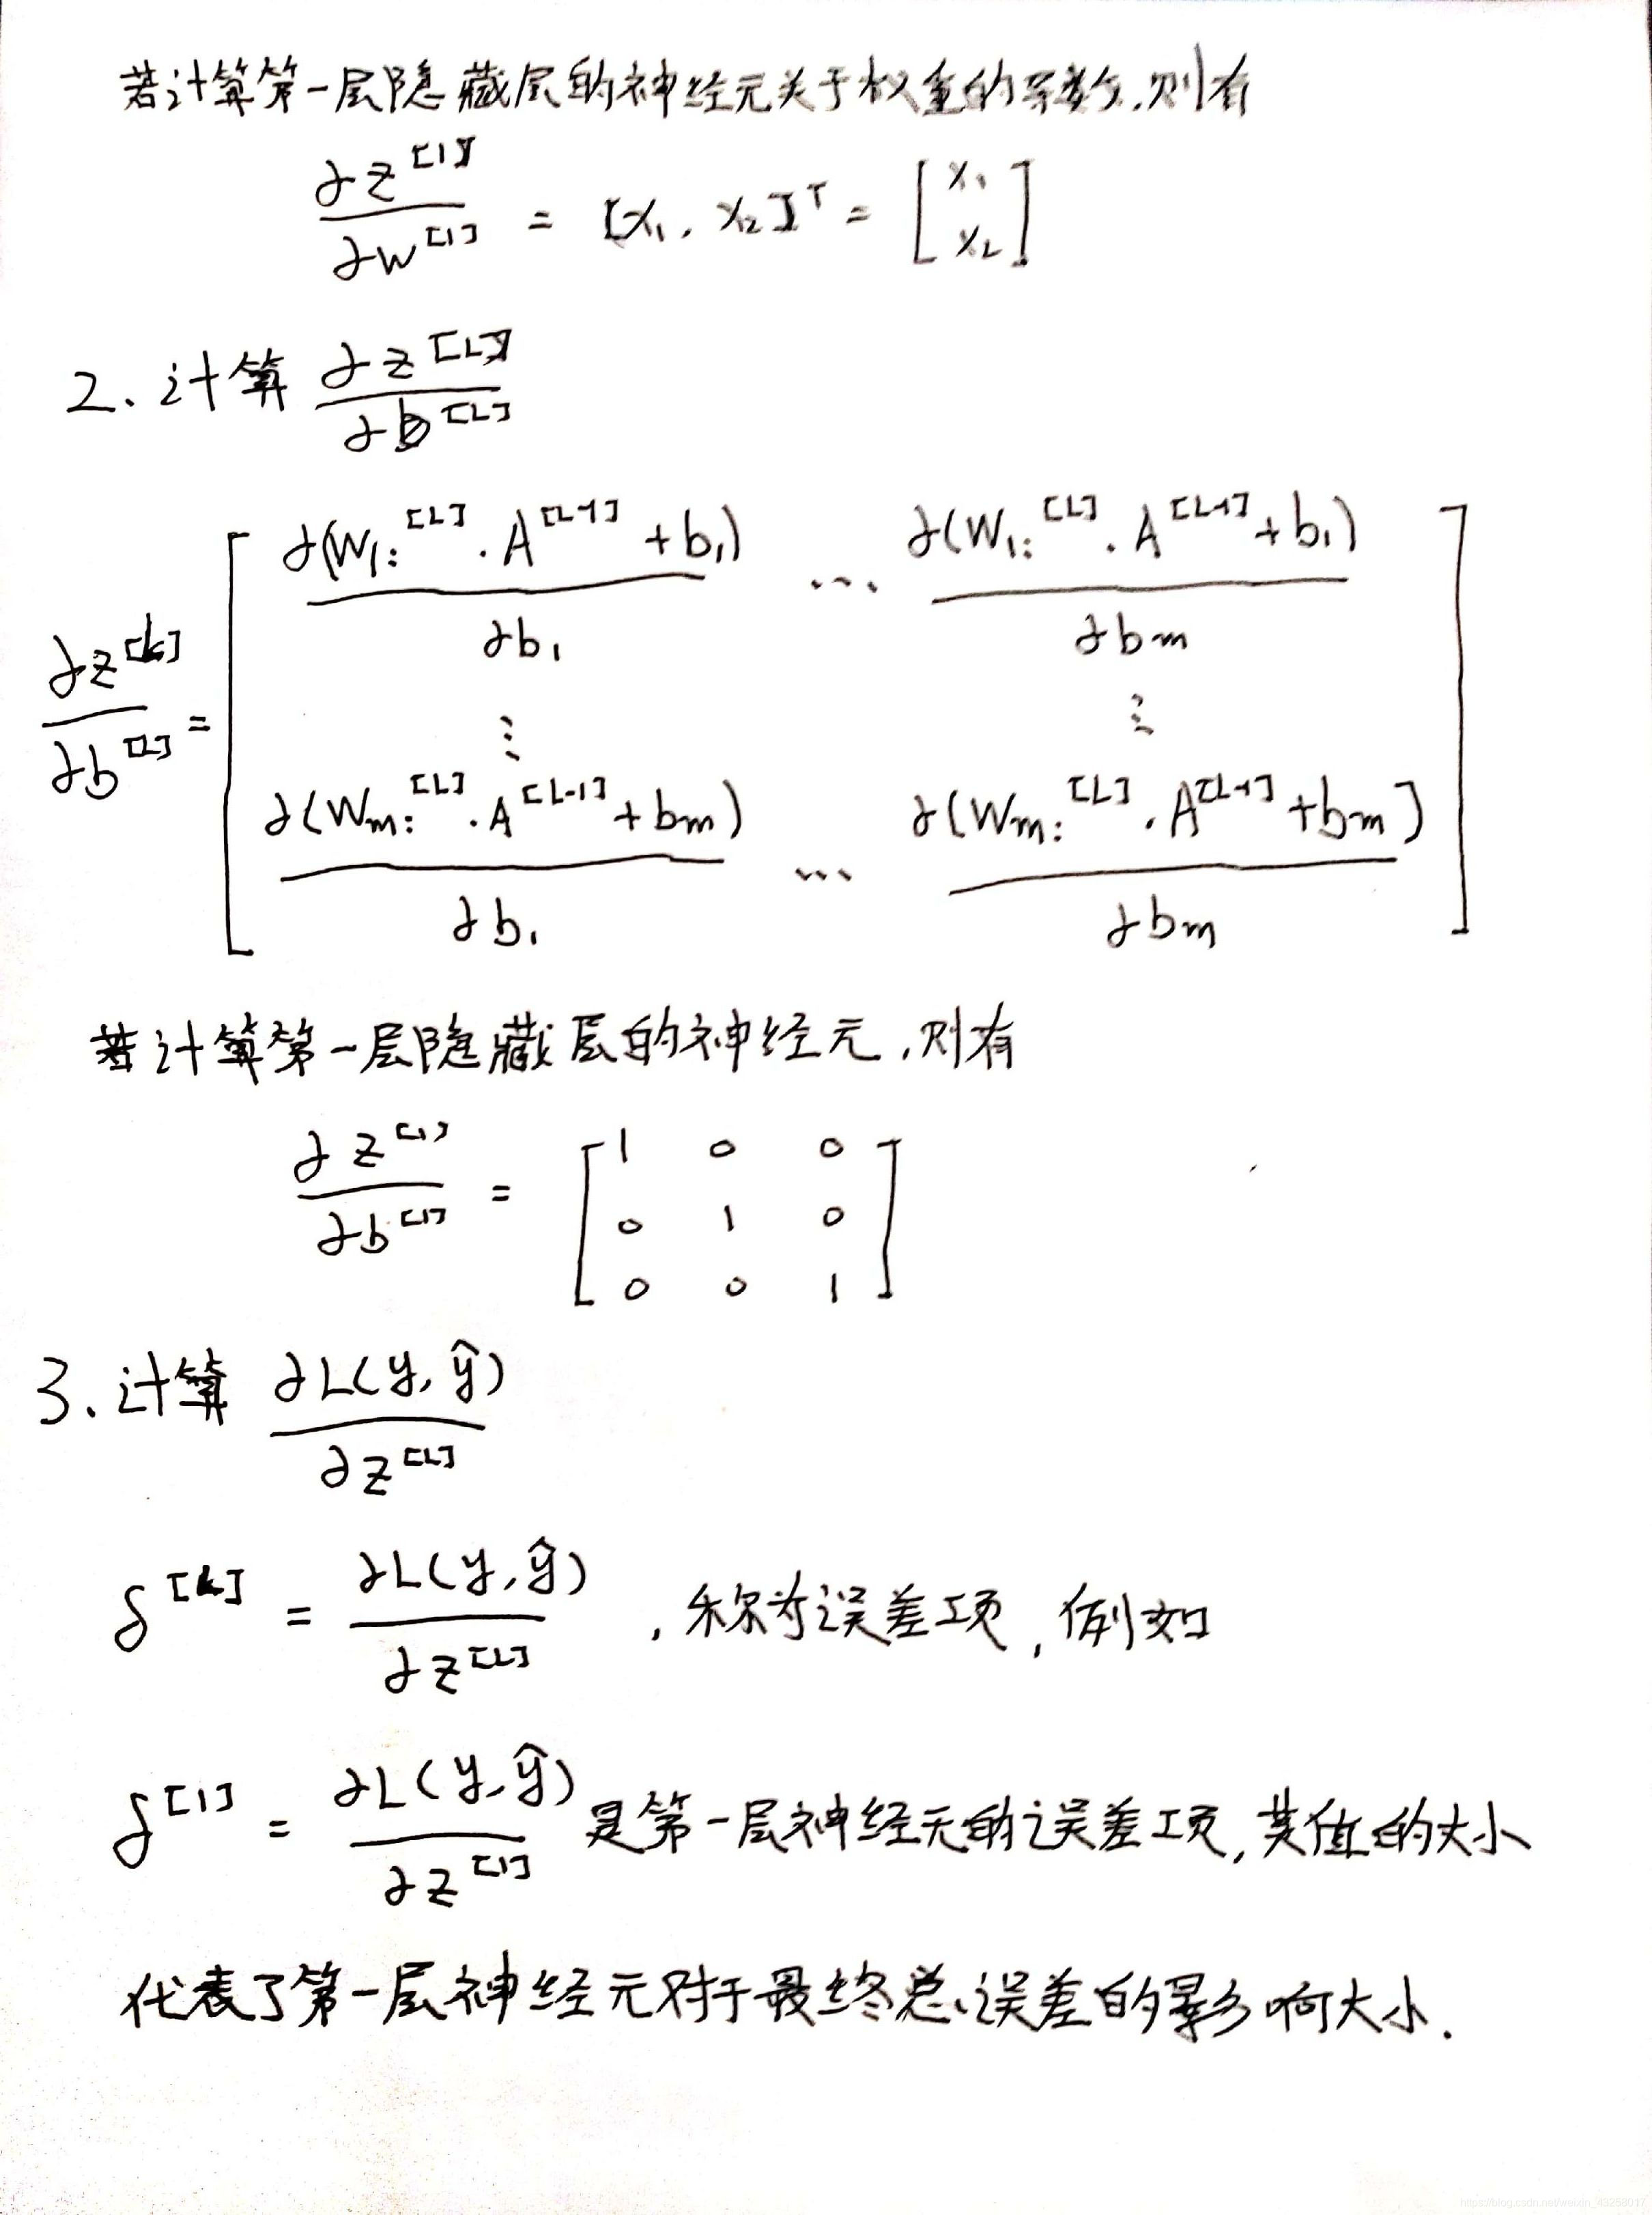 若计算第一层隐藏层的神经元关于权重的系数,则有
∂z^[1] / ∂w^[1] = [x₁, x₂]^T = [x₁ ; x₂]
2、计算 ∂z^[L] / ∂b^[L]
∂z^[L] / ∂b^[L] = [ ∂(W₁:^[L] · A^[L-1] + b₁) / ∂b₁ ... ∂(W₁:^[L] · A^[L-1] + b₁) / ∂bm
⋮ ⋮
∂(Wm:^[L] · A^[L-1] + bm) / ∂b₁ ... ∂(Wm:^[L] · A^[L-1] + bm) / ∂bm ]
若计算第一层隐藏层的神经元,则有
∂z^[1] / ∂b^[1] = [ 1 0 0
0 1 0
0 0 1 ]
3、计算 ∂L(y, ŷ) / ∂z^[L]
δ^[L] = ∂L(y, ŷ) / ∂z^[L] ,称为误差项,例如
δ^[1] = ∂L(y, ŷ) / ∂z^[1] 是第一层神经元的误差项,其值的大小
代表了第一层神经元对于最终总误差的影响大小.
https://blog.csdn.net/weixin_43258017